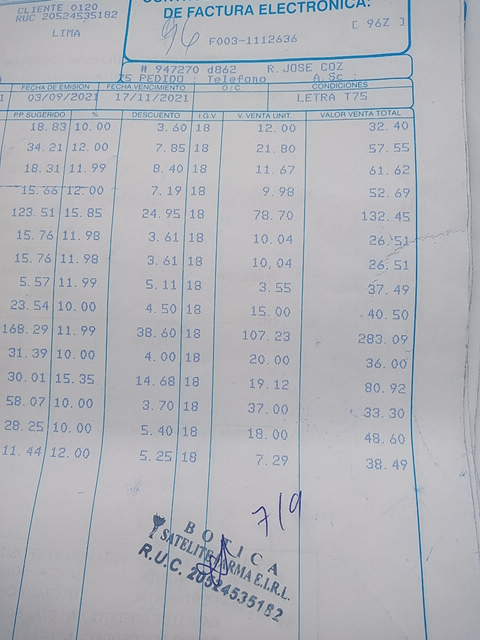 CLIENTE 0120
RUC 20524535182
LIMA
DE FACTURA ELECTRÓNICA:
F003-1112636
[ 96Z ]
96
# 947270 d862 R.JOSE COZ
75 PEDIDO : Telefono A.Sc
FECHA DE EMISIÓN FECHA VENCIMIENTO O / C CONDICIONES
03/09/2021 17/11/2021 LETRA T75
P.P. SUGERIDO % DESCUENTO I.G.V. V. VENTA UNIT. VALOR VENTA TOTAL
18.83 10.00 3.60 18 12.00 32.40
34.21 12.00 7.85 18 21.80 57.55
18.31 11.99 8.40 18 11.67 61.62
15.66 12.00 7.19 18 9.98 52.69
123.51 15.85 24.95 18 78.70 132.45
15.76 11.98 3.61 18 10.04 26.51
15.76 11.98 3.61 18 10.04 26.51
5.57 11.99 5.11 18 3.55 37.49
23.54 10.00 4.50 18 15.00 40.50
168.29 11.99 38.60 18 107.23 283.09
31.39 10.00 4.00 18 20.00 36.00
30.01 15.35 14.68 18 19.12 80.92
58.07 10.00 3.70 18 37.00 33.30
28.25 10.00 5.40 18 18.00 48.60
11.44 12.00 5.25 18 7.29 38.49
7/9
BOTICA
SATELITE FARMA E.I.R.L.
R.U.C. 20524535182